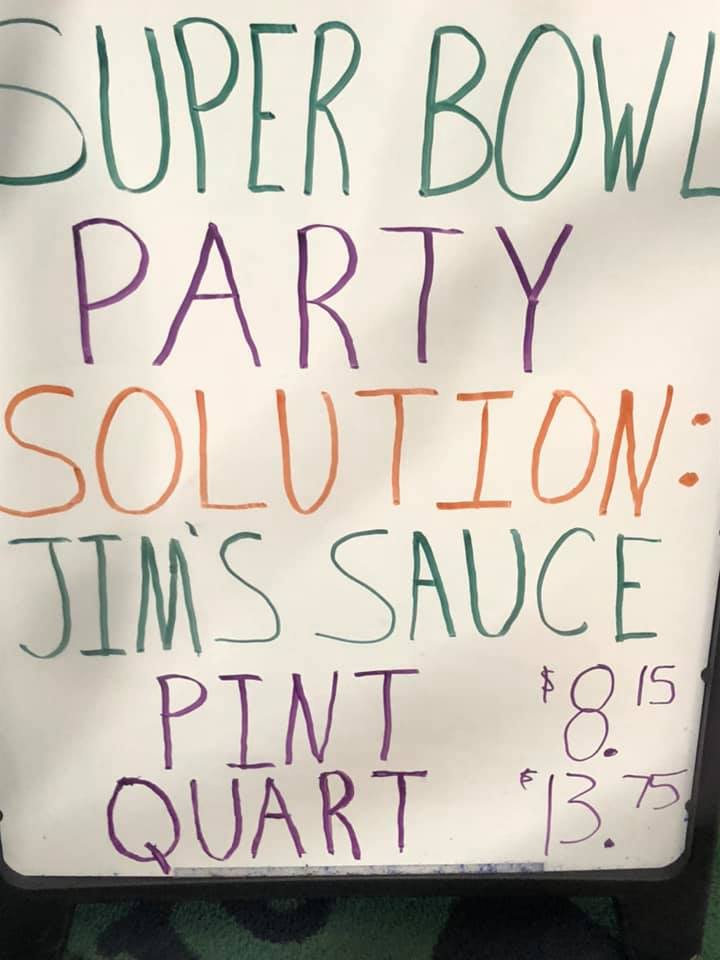 SUPER BOWL
PARTY
SOLUTION:
JIM'S SAUCE
PINT $8.15
QUART $13.75